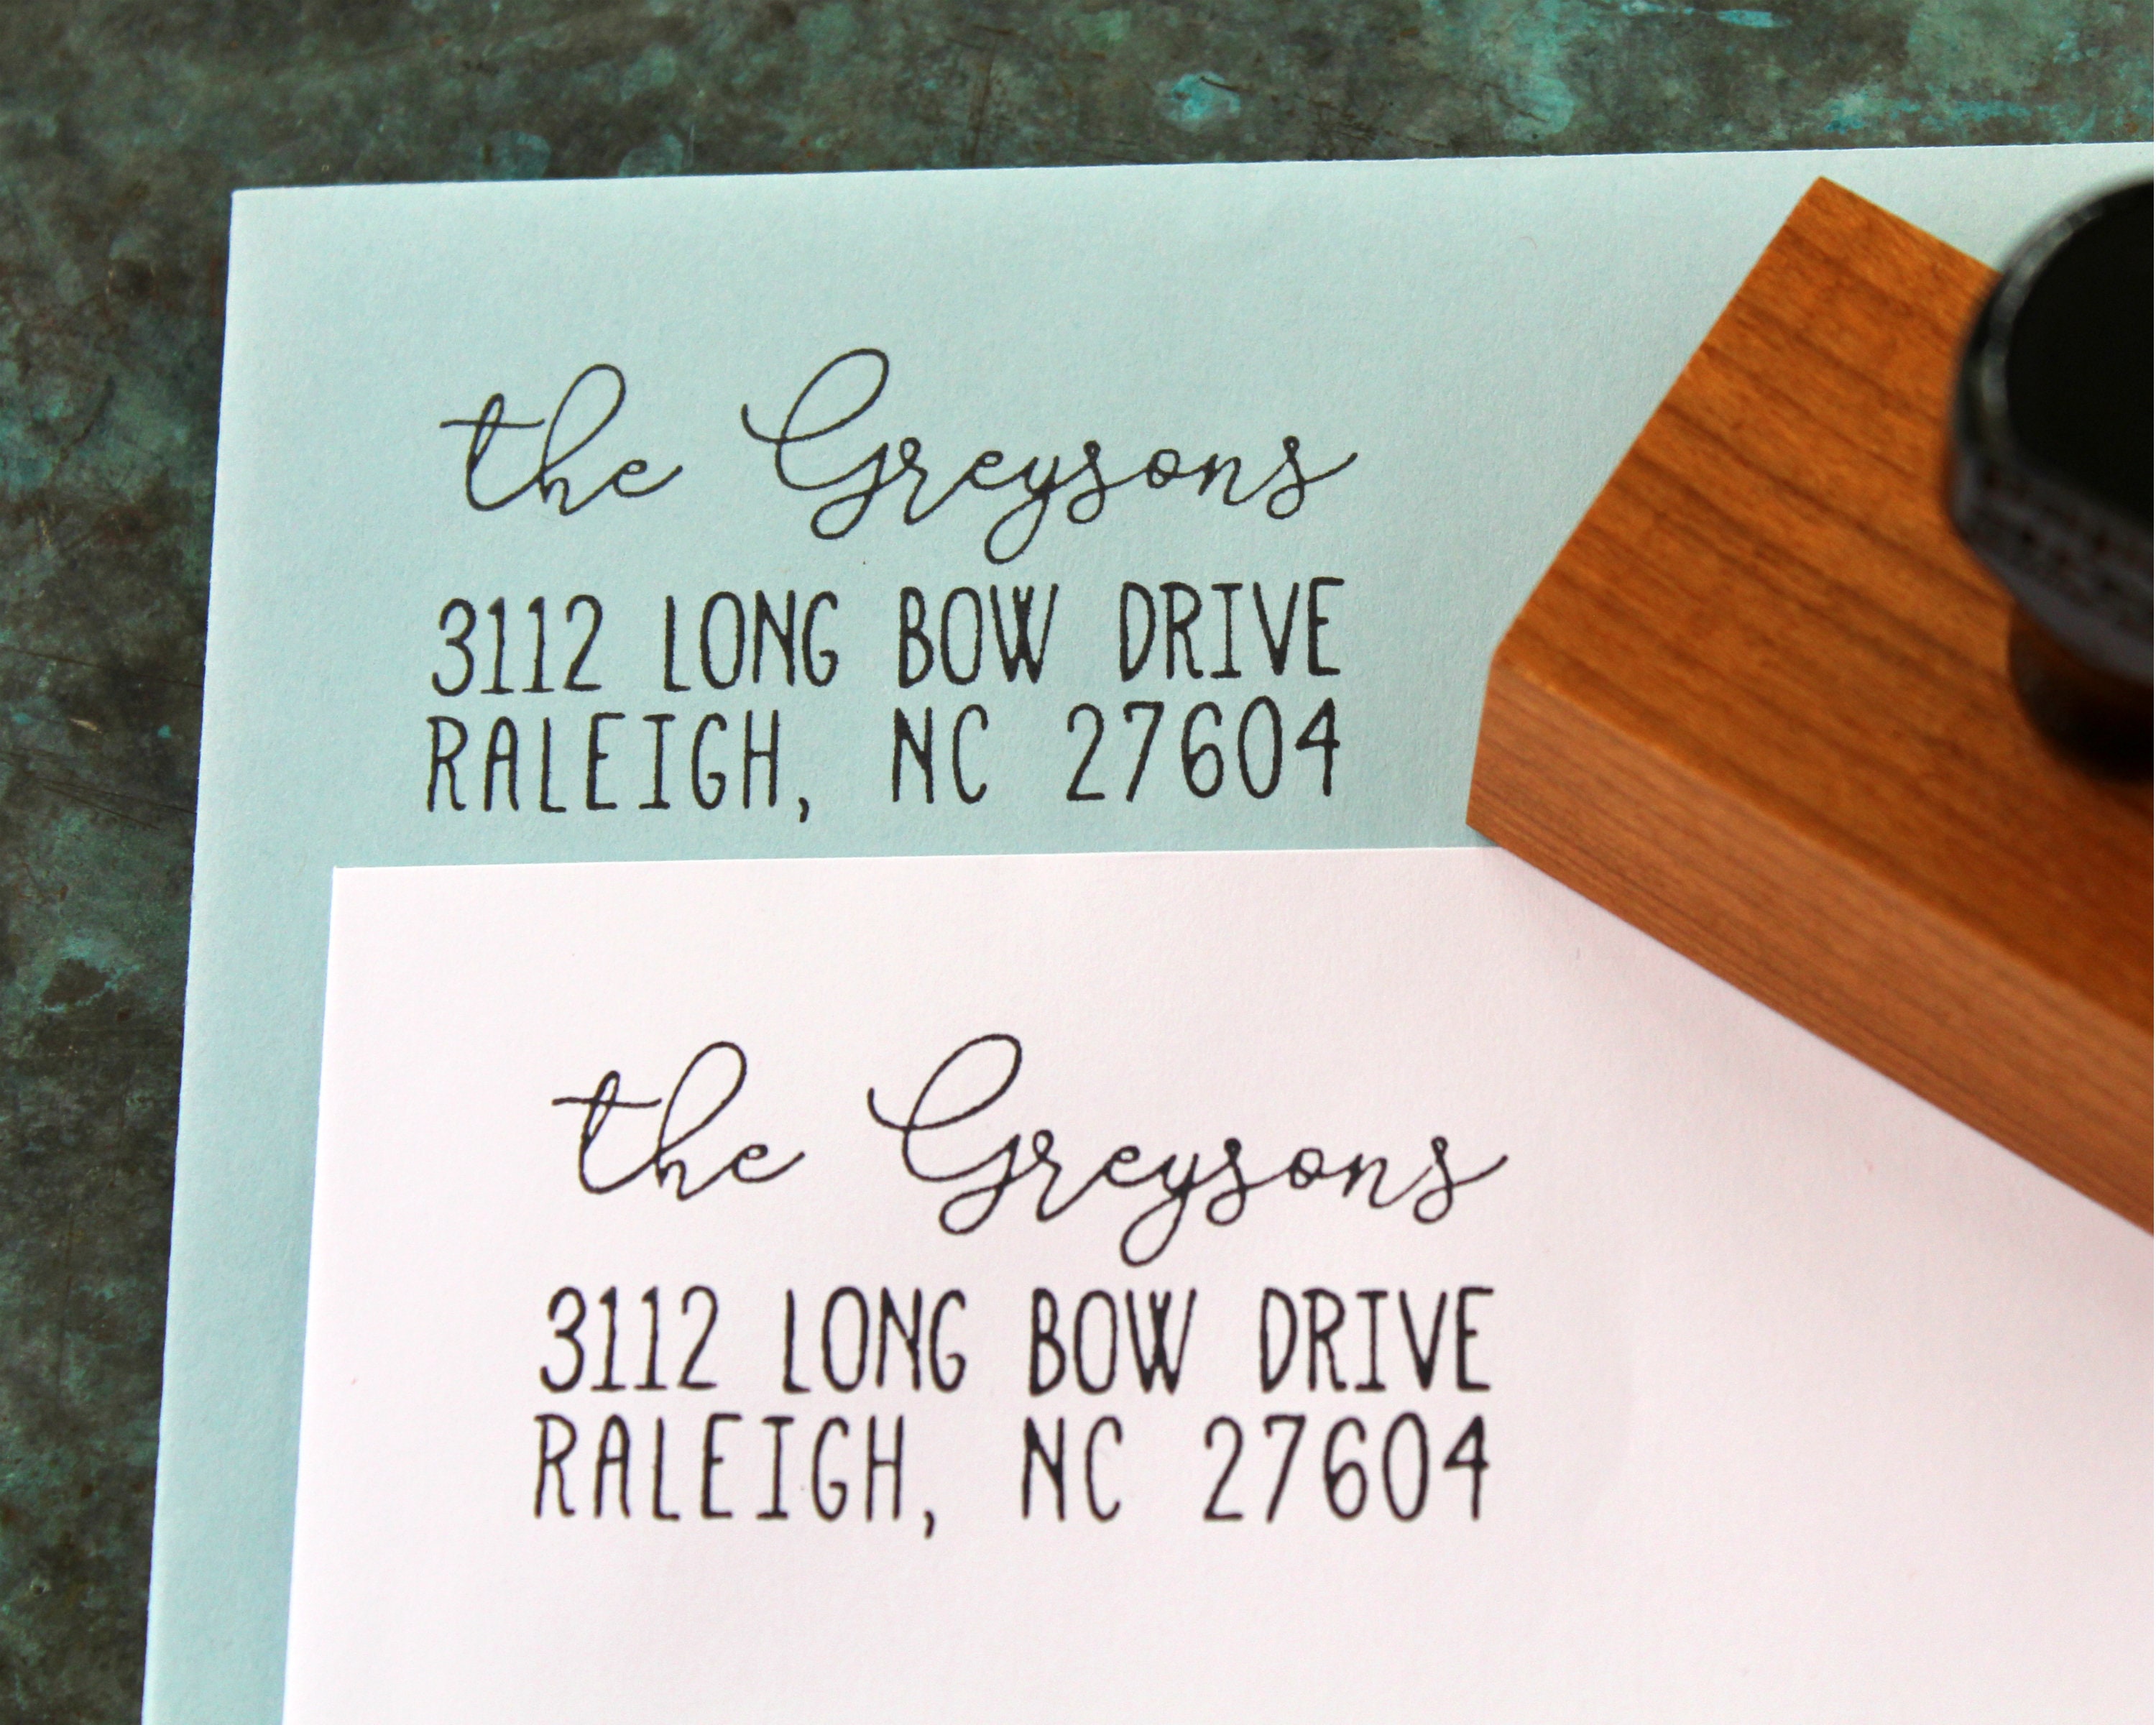 the Greysons
3112 LONG BOW DRIVE
RALEIGH, NC 27604
the Greysons
3112 LONG BOW DRIVE
RALEIGH, NC 27604